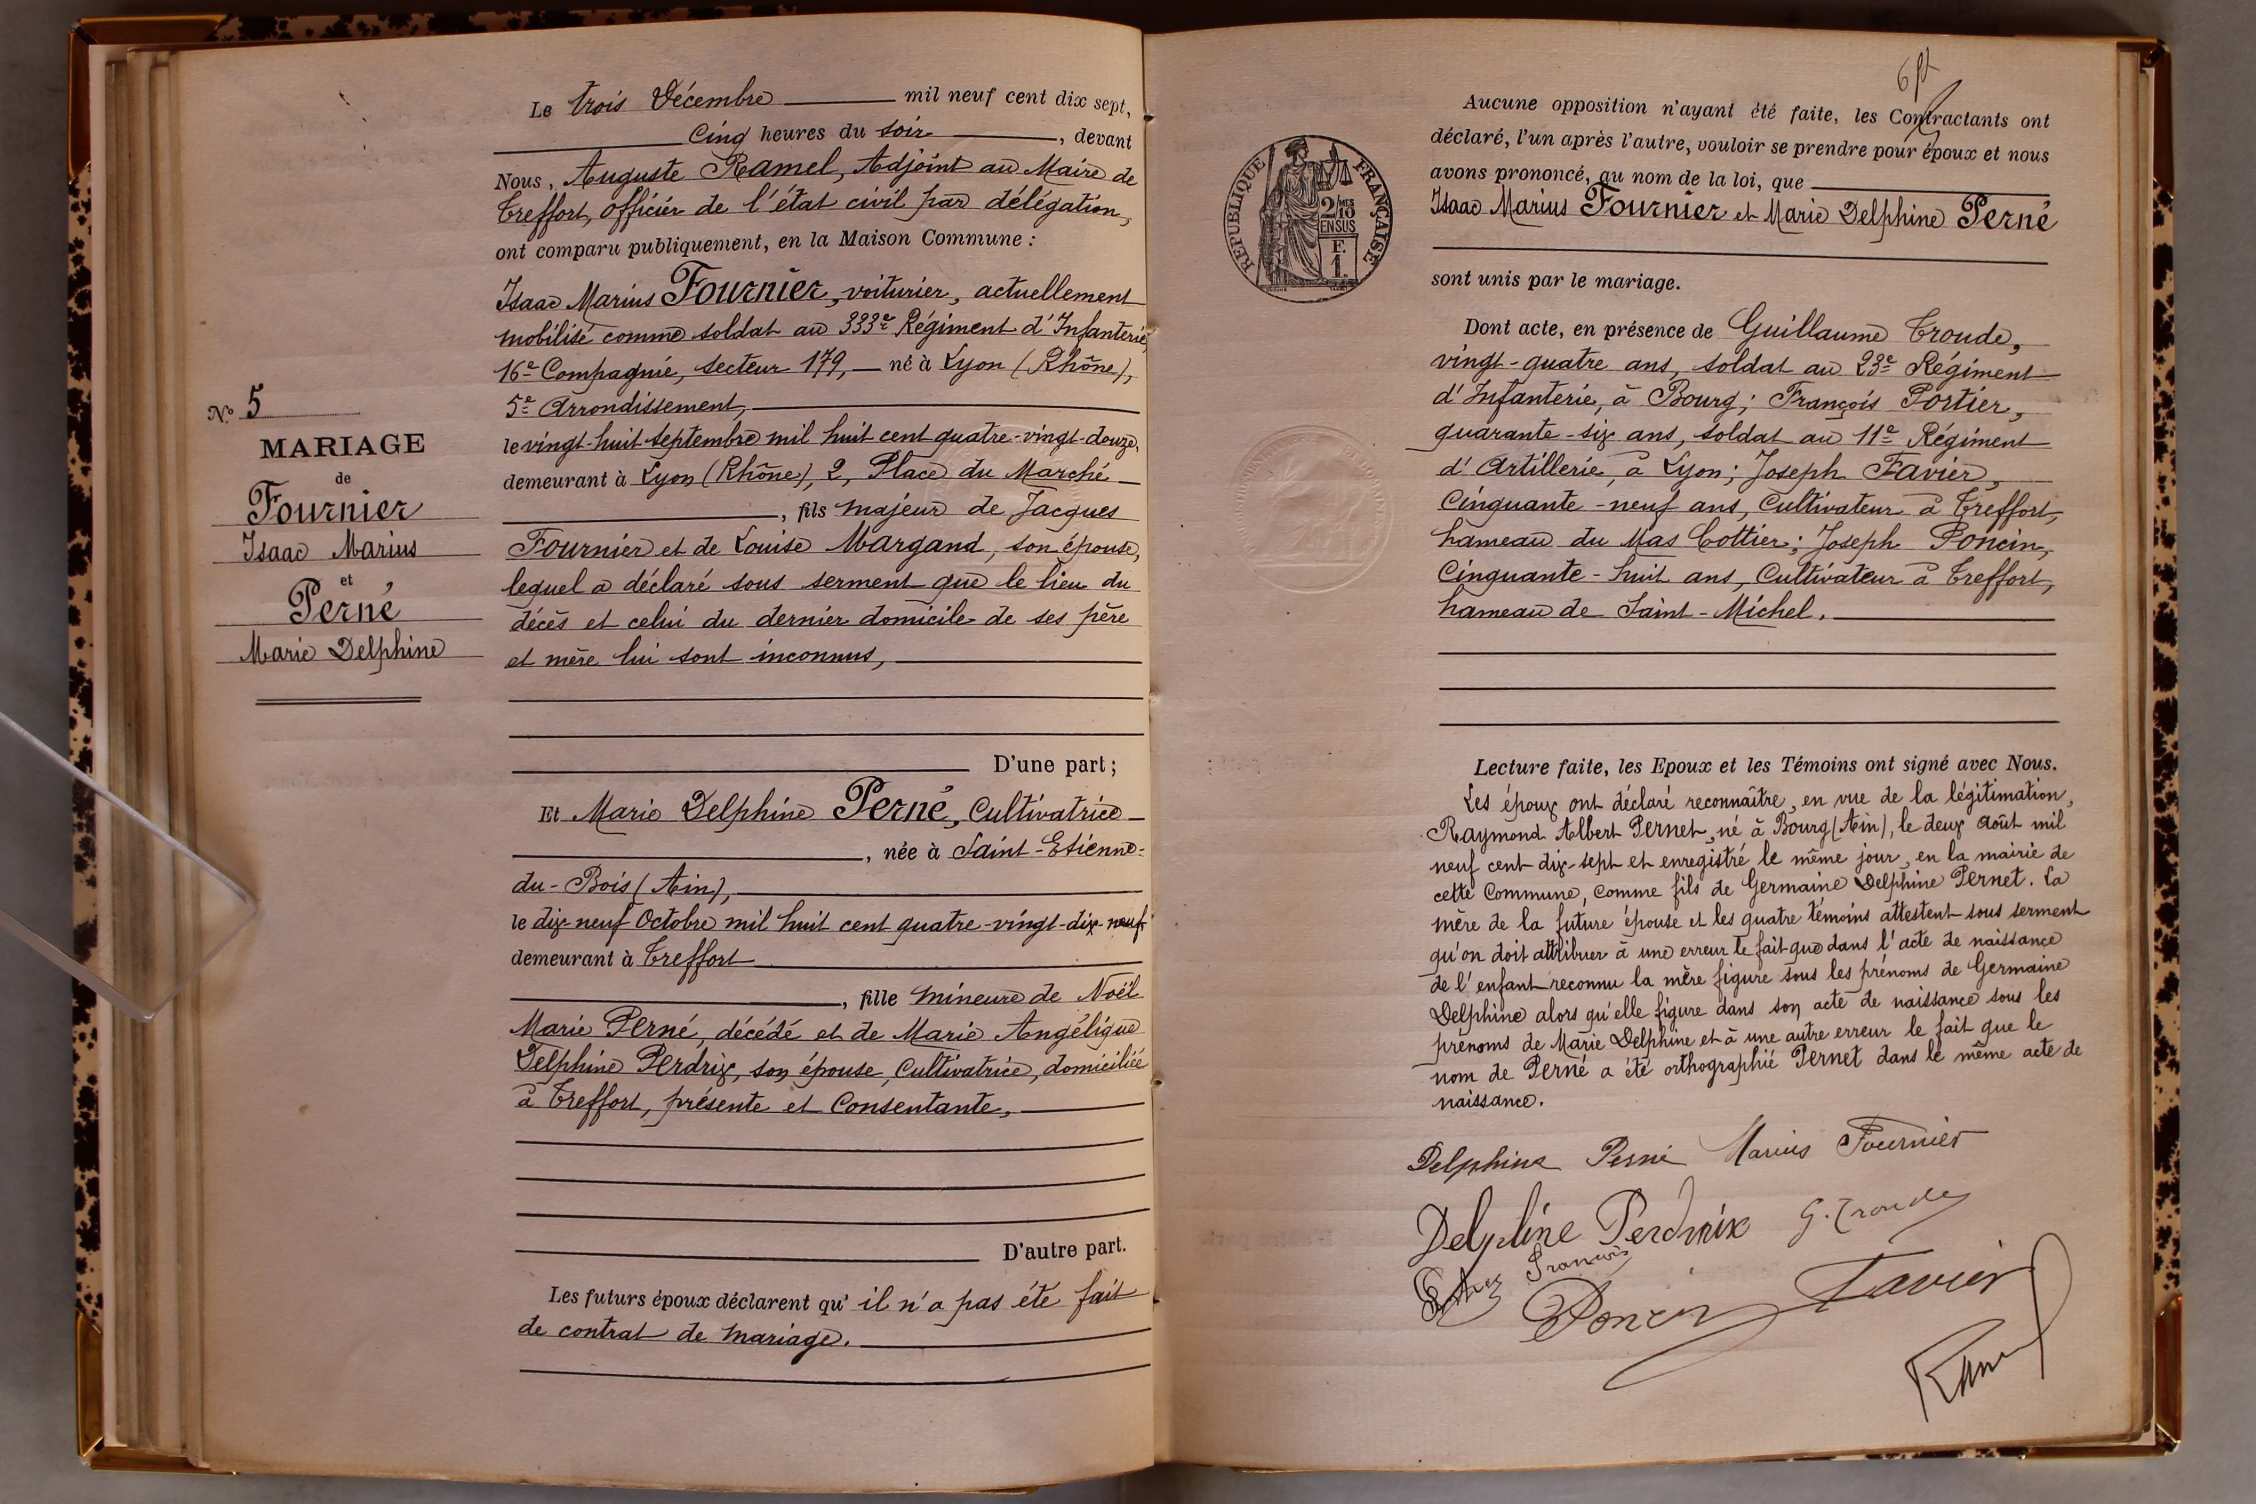 N.º 5
MARIAGE
de
Fournier
Isaac Marius
et
Perné
Marie Delphine
Le trois Décembre mil neuf cent dix sept,
Cinq heures du soir, devant
Nous, Auguste Ramel, Adjoint au Maire de
Treffort, officier de l'état civil par délégation,
ont comparu publiquement, en la Maison Commune :
Isaac Marius Fournier, voiturier, actuellement
mobilisé comme soldat au 333e Régiment d'Infanterie,
16e Compagnie, secteur 179, né à Lyon (Rhône),
5e Arrondissement,
le vingt-huit septembre mil huit cent quatre-vingt-douze,
demeurant à Lyon (Rhône), 2, Place du Marché
, fils majeur de Jacques
Fournier et de Louise Margand, son épouse,
lequel a déclaré sous serment que le lieu du
décès et celui du dernier domicile de ses père
et mère lui sont inconnus,
D'une part ;
Et Marie Delphine Perné, Cultivatrice
, née à Saint-Etienne-
du-Bois (Ain),
le dix-neuf Octobre mil huit cent quatre-vingt-dix-neuf
demeurant à Treffort
, fille mineure de Noël
Marie Perné, décédé et de Marie Angélique
Delphine Perdrix, son épouse, Cultivatrice, domiciliée
à Treffort, présente et Consentante,
D'autre part.
Les futurs époux déclarent qu'il n'a pas été fait
de contrat de mariage.
REPUBLIQUE FRANÇAISE
2/10 EN SUS
F. 1.
Aucune opposition n'ayant été faite, les Contractants ont
déclaré, l'un après l'autre, vouloir se prendre pour époux et nous
avons prononcé, au nom de la loi, que
Isaac Marius Fournier et Marie Delphine Perné
sont unis par le mariage.
Dont acte, en présence de Guillaume Troude,
vingt-quatre ans, soldat au 23e Régiment
d'Infanterie, à Bourg ; François Portier,
quarante-six ans, soldat au 11e Régiment
d'Artillerie, à Lyon ; Joseph Favier,
Cinquante-neuf ans, Cultivateur à Treffort,
hameau du Mas Cottier ; Joseph Poncin,
Cinquante-huit ans, Cultivateur à Treffort,
hameau de Saint-Michel.
Lecture faite, les Epoux et les Témoins ont signé avec Nous.
Les époux ont déclaré reconnaître, en vue de la légitimation,
Raymond Albert Pernet, né à Bourg (Ain), le deux Août mil
neuf cent dix-sept et enregistré le même jour, en la mairie de
cette Commune, comme fils de Germaine Delphine Pernet. La
mère de la future épouse et les quatre témoins attestent sous serment
qu'on doit attribuer à une erreur le fait que dans l'acte de naissance
de l'enfant reconnu la mère figure sous les prénoms de Germaine
Delphine alors qu'elle figure dans son acte de naissance sous les
prénoms de Marie Delphine et à une autre erreur le fait que le
nom de Perné a été orthographié Pernet dans le même acte de
naissance.
Delphine Perné Marius Fournier
Delphine Perdrix G. Troude
François
Poncin Favier
Ramel